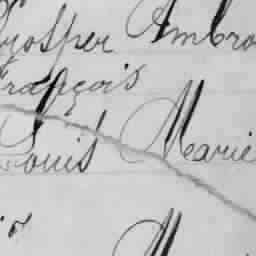 Prosper Ambro
François
Louis Marie